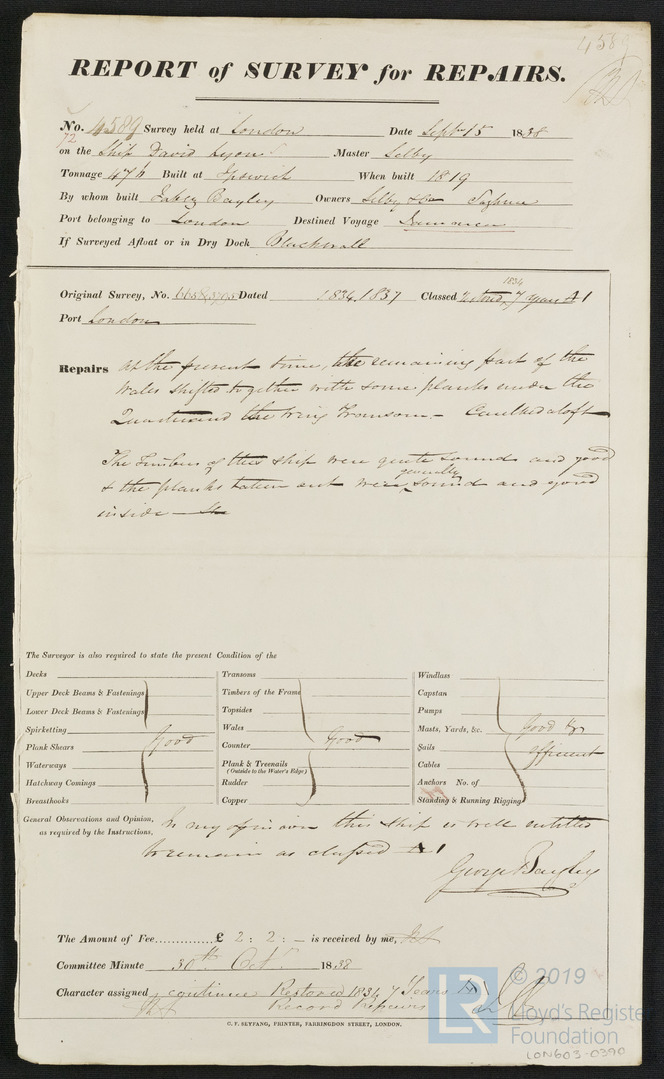 4589
REPORT of SURVEY for REPAIRS.
No. 4589 Survey held at London Date Sept 15 1838
72
on the Ship David Lyon Master Selby
Tonnage 476 Built at Ipswich When built 1819
By whom built Jabez Bayley Owners Selby &
Port belonging to London Destined Voyage
If Surveyed Afloat or in Dry Dock Blackwall
Original Survey, No. Dated 1834, 1837 Classed 1834 7 years A1
Port London
Repairs At the present time, the remaining part of the
Wales shifted together with some planks under the
Quarter and the Wing Transom – Caulked aloft
The Timbers of this ship were quite sound and good
& the planks taken out were generally sound and good
inside
The Surveyor is also required to state the present Condition of the
Decks
Upper Deck Beams & Fastenings
Lower Deck Beams & Fastenings
Spirketting
Plank Shears Good
Waterways
Hatchway Comings
Breasthooks
Transoms
Timbers of the Frame
Topsides
Wales
Counter Good
Plank & Treenails
(Outside to the Water's Edge)
Rudder
Copper
Windlass
Capstan
Pumps
Masts, Yards, &c. Good &
Sails efficient
Cables
Anchors No. of
Standing & Running Rigging
General Observations and Opinion, In my opinion this ship is well entitled
as required by the Instructions, to remain as classed A1
George Bayley
The Amount of Fee.............. £ 2 : 2 : – is received by me,
Committee Minute 30th Oct 1838
Character assigned continue Restored 1834, 7 Years A1
Record Repairs
C. F. SEYFANG, PRINTER, FARRINGDON STREET, LONDON.
LR
© 2019
Lloyd's Register
Foundation
LON603-0390